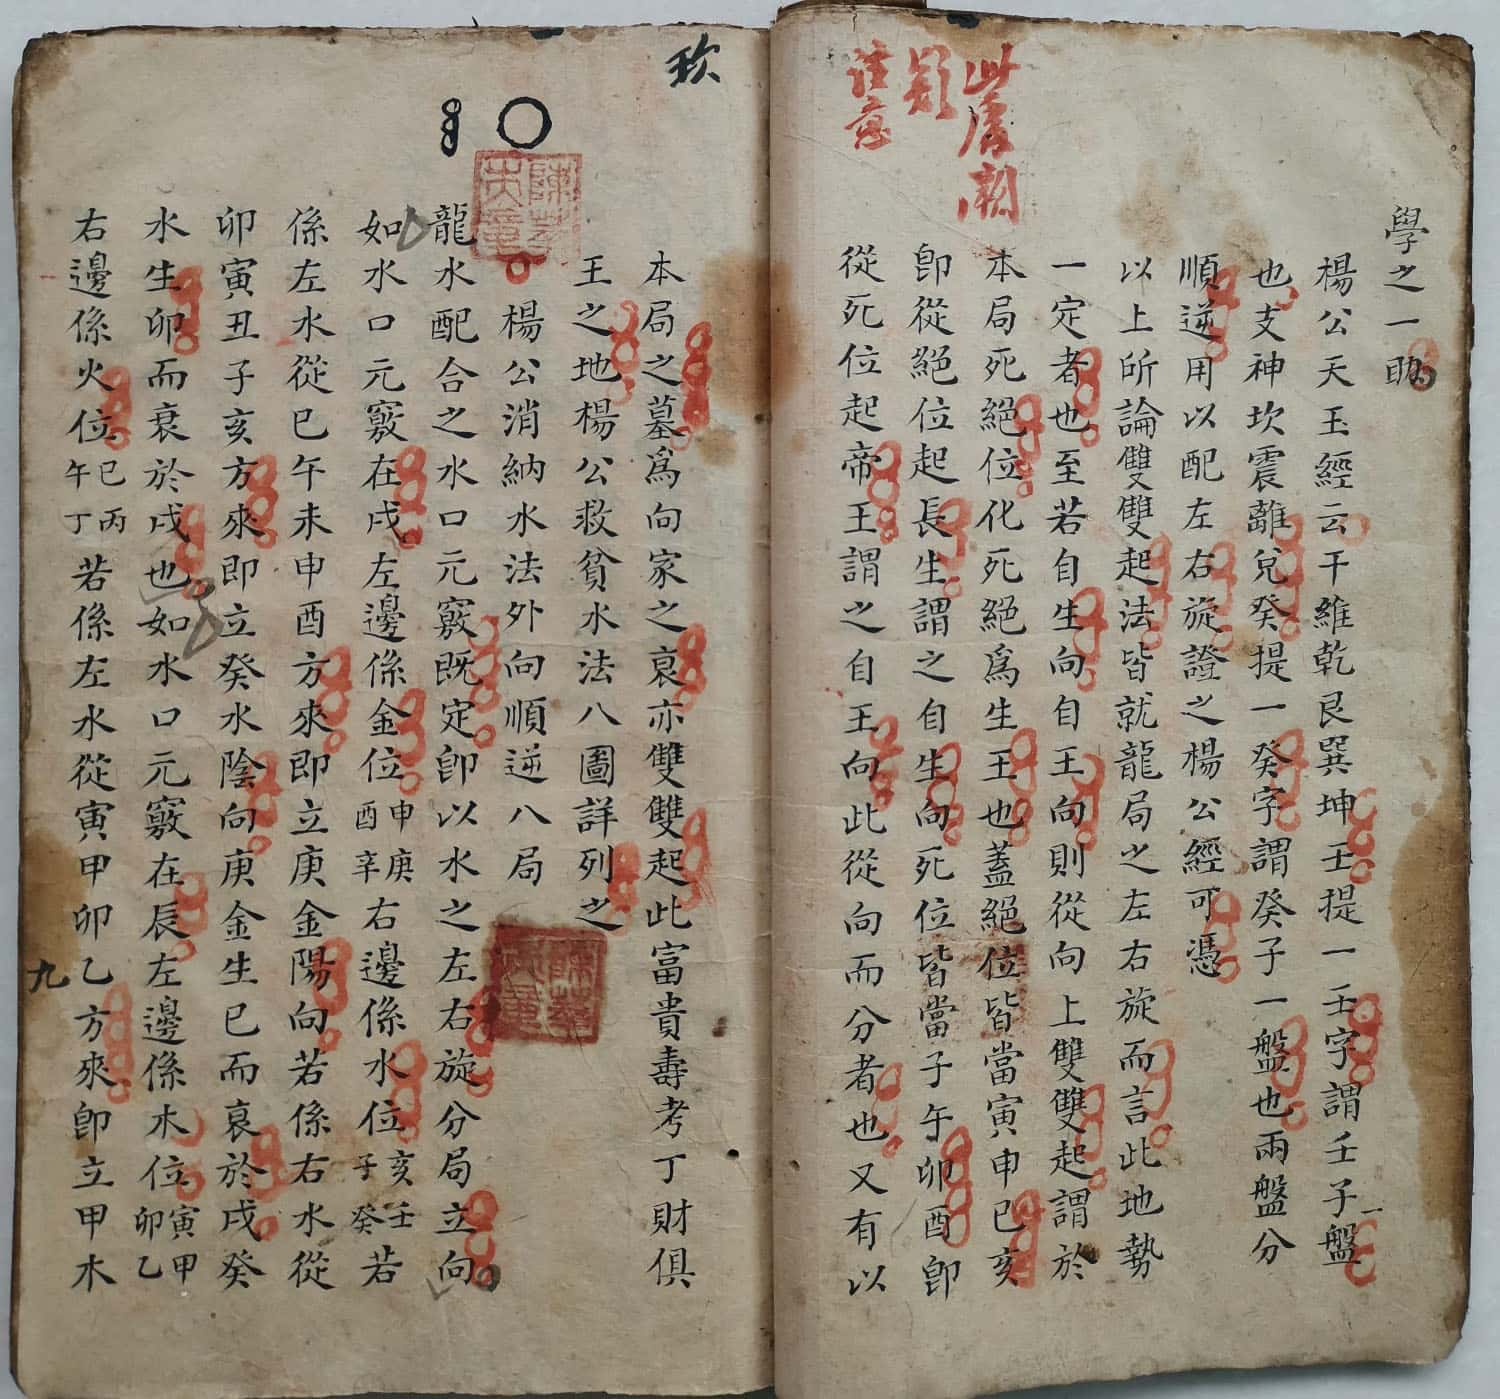 學之一助
楊公天玉經云干維乾艮巽坤壬提一壬字謂壬子一盤
也支神坎震離兌癸提一癸字謂癸子一盤也兩盤分
順逆用以配左右旋證之楊公經可憑
以上所論雙雙起法皆就龍局之左右旋而言此地勢
一定者也至若自生向自王向則從向上雙雙起謂於
本局死絕位化死絕為生王也蓋絕位皆當寅申巳亥
即從絕位起長生謂之自生向死位皆當子午卯酉即
從死位起帝王謂之自王向此從向而分者也又有以
此
疑
注意
本局之墓為向家之衰亦雙雙起此富貴壽考丁財俱
王之地楊公救貧水法八圖詳列之
楊公消納水法外向順逆八局
龍水配合之水口元竅既定即以水之左右旋分局立向
如水口元竅在戌左邊係金位申庚酉辛右邊係水位亥壬子癸若
係左水從巳午未申酉方來即立庚金陽向若係右水從
卯寅丑子亥方來即立癸水陰向庚金生巳而衰於戌癸
水生卯而衰於戌也如水口元竅在辰左邊係木位寅甲卯乙
右邊係火位巳丙午丁若係左水從寅甲卯乙方來即立甲木
九